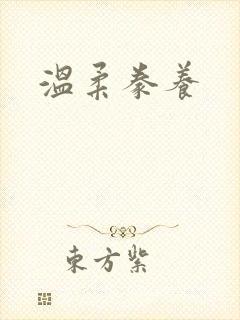 溫柔豢養
東方紫